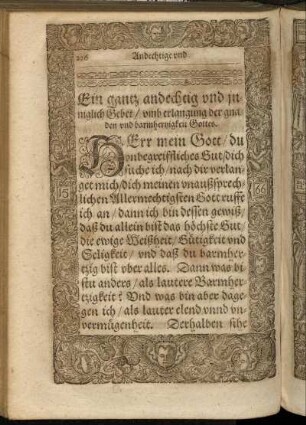 Andechtige vnd
Ein gantz andechtig vnd jn
niglich Gebet / vmb erlangung der gna
den vnd barmhertzigkeit Gottes.
HErr mein Gott / du
vnbegreiffliches Gut / dich
suche ich / nach dir verlan
get mich / dich meinen vnaußsprech
lichen Allermechtigsten Gott ruffe
ich an / dann ich bin dessen gewiß /
daß du allein bist das höchste Gut
die ewige Weißheit / Gütigkeit vnd
Seligkeit / vnd daß du barmher
tzig bist vber alles. Dann was bi
stu anders / als lautere Barmher
tzigkeit? Vnd was bin aber dage
gen ich / als lauter elend vnnd vn
vermügenheit. Derhalben sihe